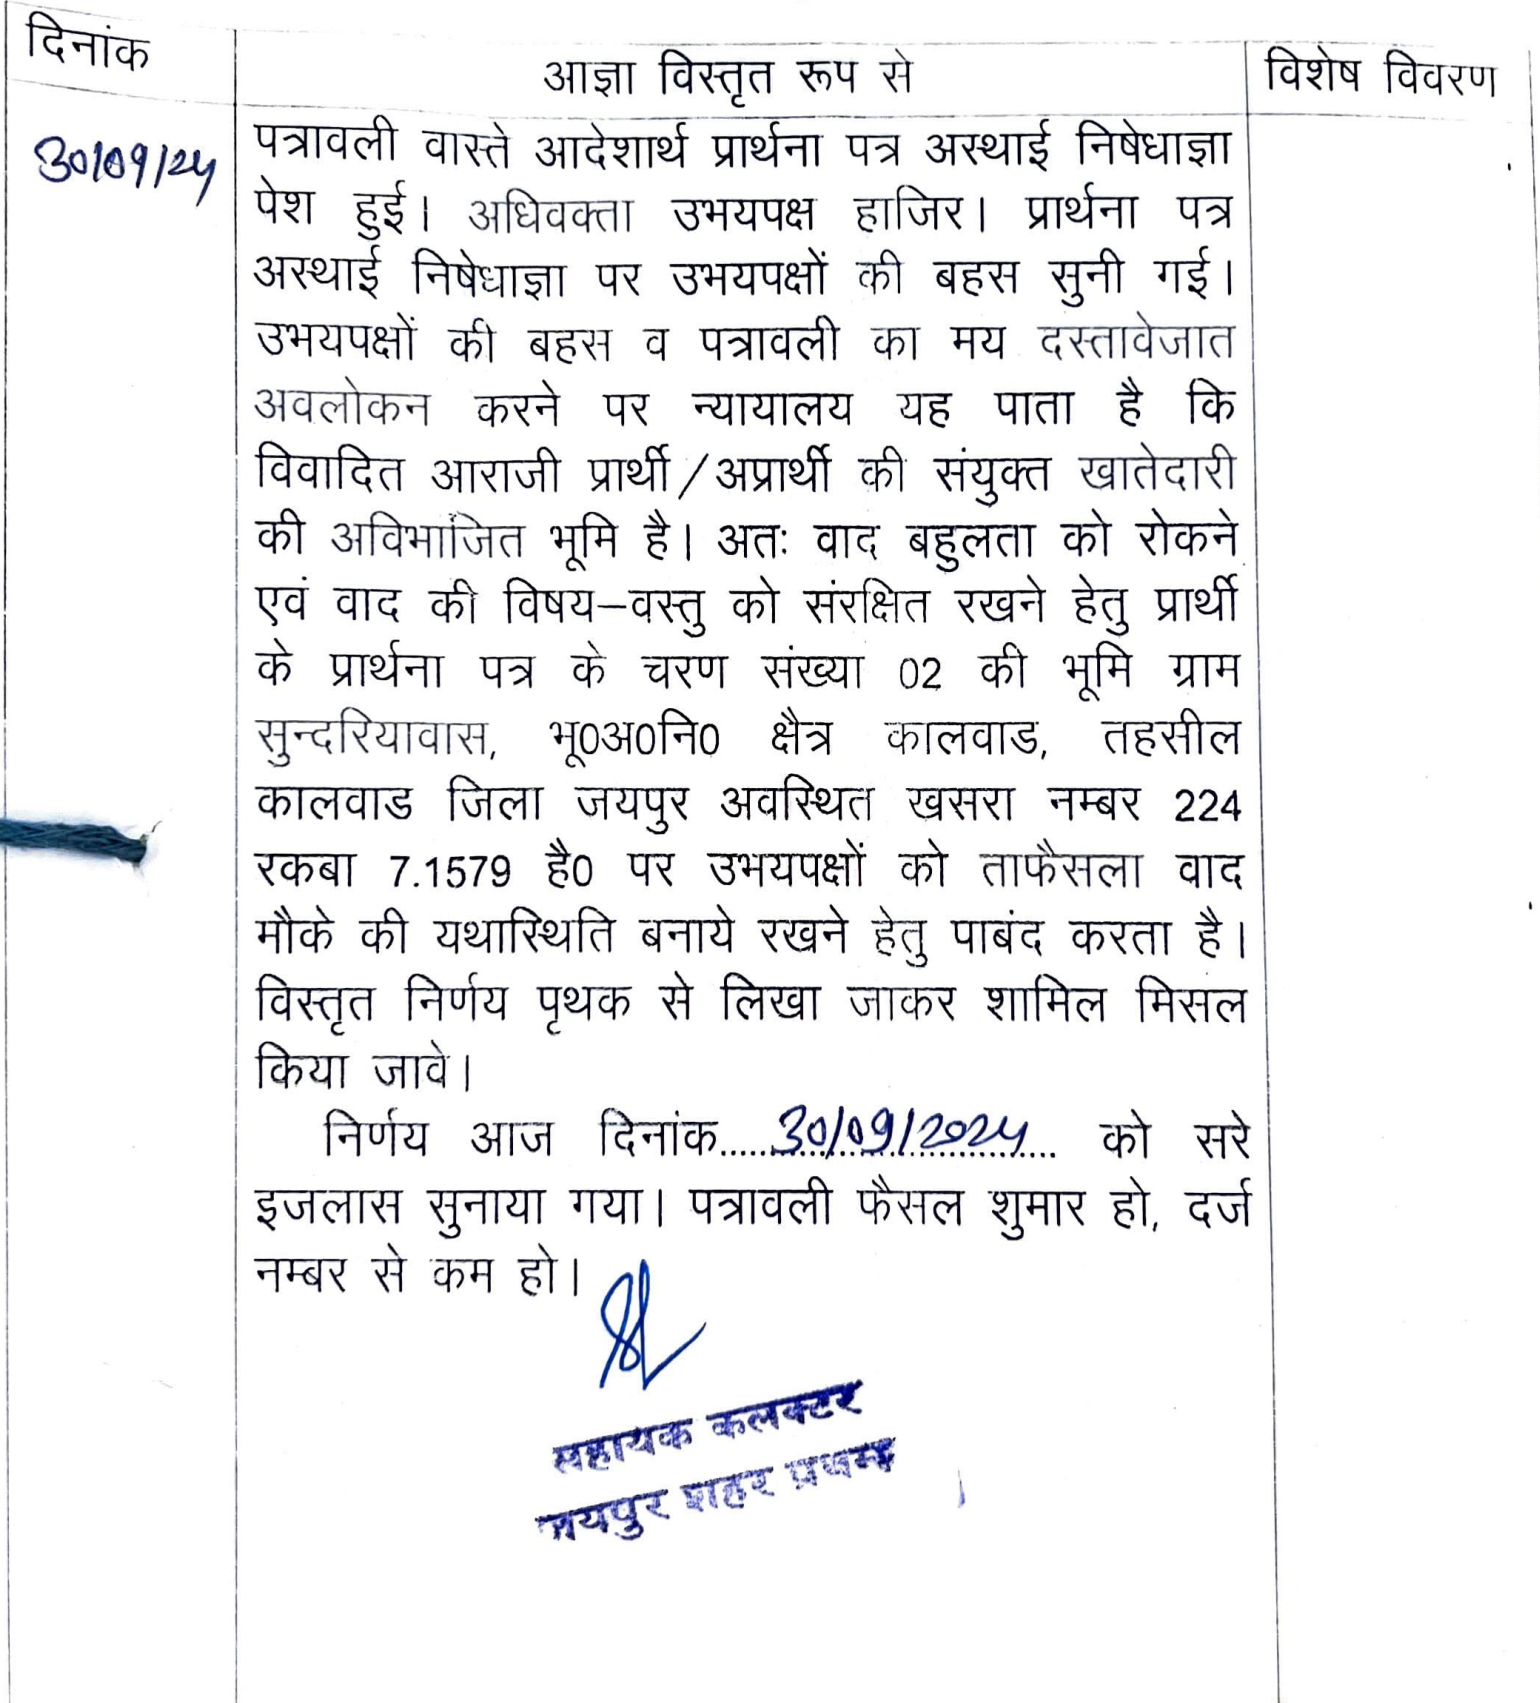 दिनांक
आज्ञा विस्तृत रूप से
विशेष विवरण
30/09/24
पत्रावली वास्ते आदेशार्थ प्रार्थना पत्र अस्थाई निषेधाज्ञा
पेश हुई। अधिवक्ता उभयपक्ष हाजिर। प्रार्थना पत्र
अस्थाई निषेधाज्ञा पर उभयपक्षों की बहस सुनी गई।
उभयपक्षों की बहस व पत्रावली का मय दस्तावेजात
अवलोकन करने पर न्यायालय यह पाता है कि
विवादित आराजी प्रार्थी/अप्रार्थी की संयुक्त खातेदारी
की अविभाजित भूमि है। अतः वाद बहुलता को रोकने
एवं वाद की विषय–वस्तु को संरक्षित रखने हेतु प्रार्थी
के प्रार्थना पत्र के चरण संख्या 02 की भूमि ग्राम
सुन्दरियावास, भू0अ0नि0 क्षैत्र कालवाड, तहसील
कालवाड जिला जयपुर अवस्थित खसरा नम्बर 224
रकबा 7.1579 है0 पर उभयपक्षों को ताफैसला वाद
मौके की यथास्थिति बनाये रखने हेतु पाबंद करता है।
विस्तृत निर्णय पृथक से लिखा जाकर शामिल मिसल
किया जावे।
निर्णय आज दिनांक.....30/09/2024..... को सरे
इजलास सुनाया गया। पत्रावली फैसल शुमार हो, दर्ज
नम्बर से कम हो।
सहायक कलक्टर
जयपुर शहर प्रथम